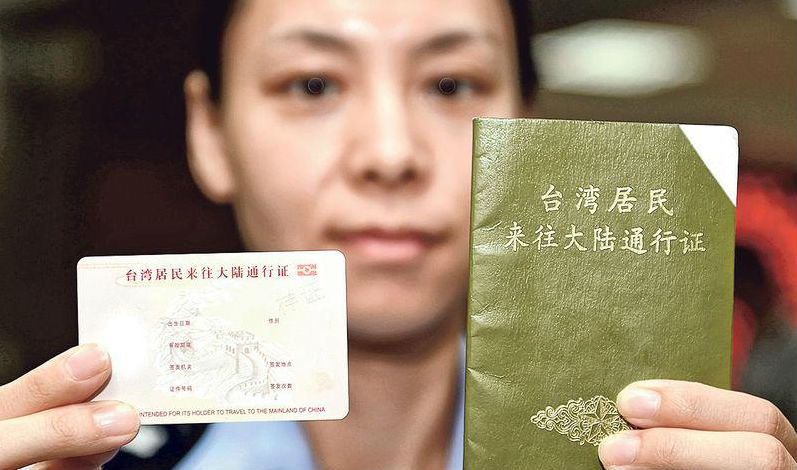 台湾居民来往大陆通行证
出生日期
性别
有效期限
签发机关
签发地点
证件号码
签发次数
INTENDED FOR ITS HOLDER TO TRAVEL TO THE MAINLAND OF CHINA
台湾居民
来往大陆通行证